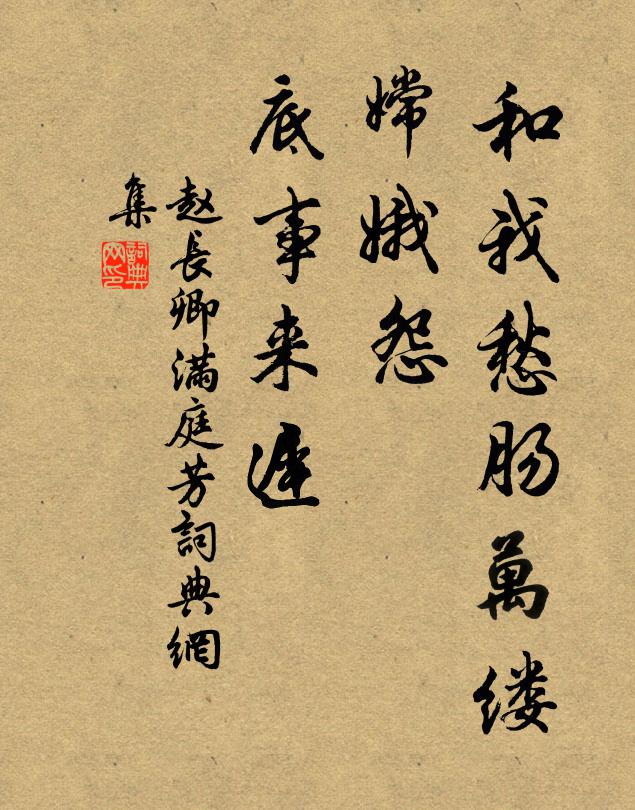 和我愁肠萬缕
嫦娥怨
底事来遲
赵長卿满庭芳詞典網
集
詞典
网印